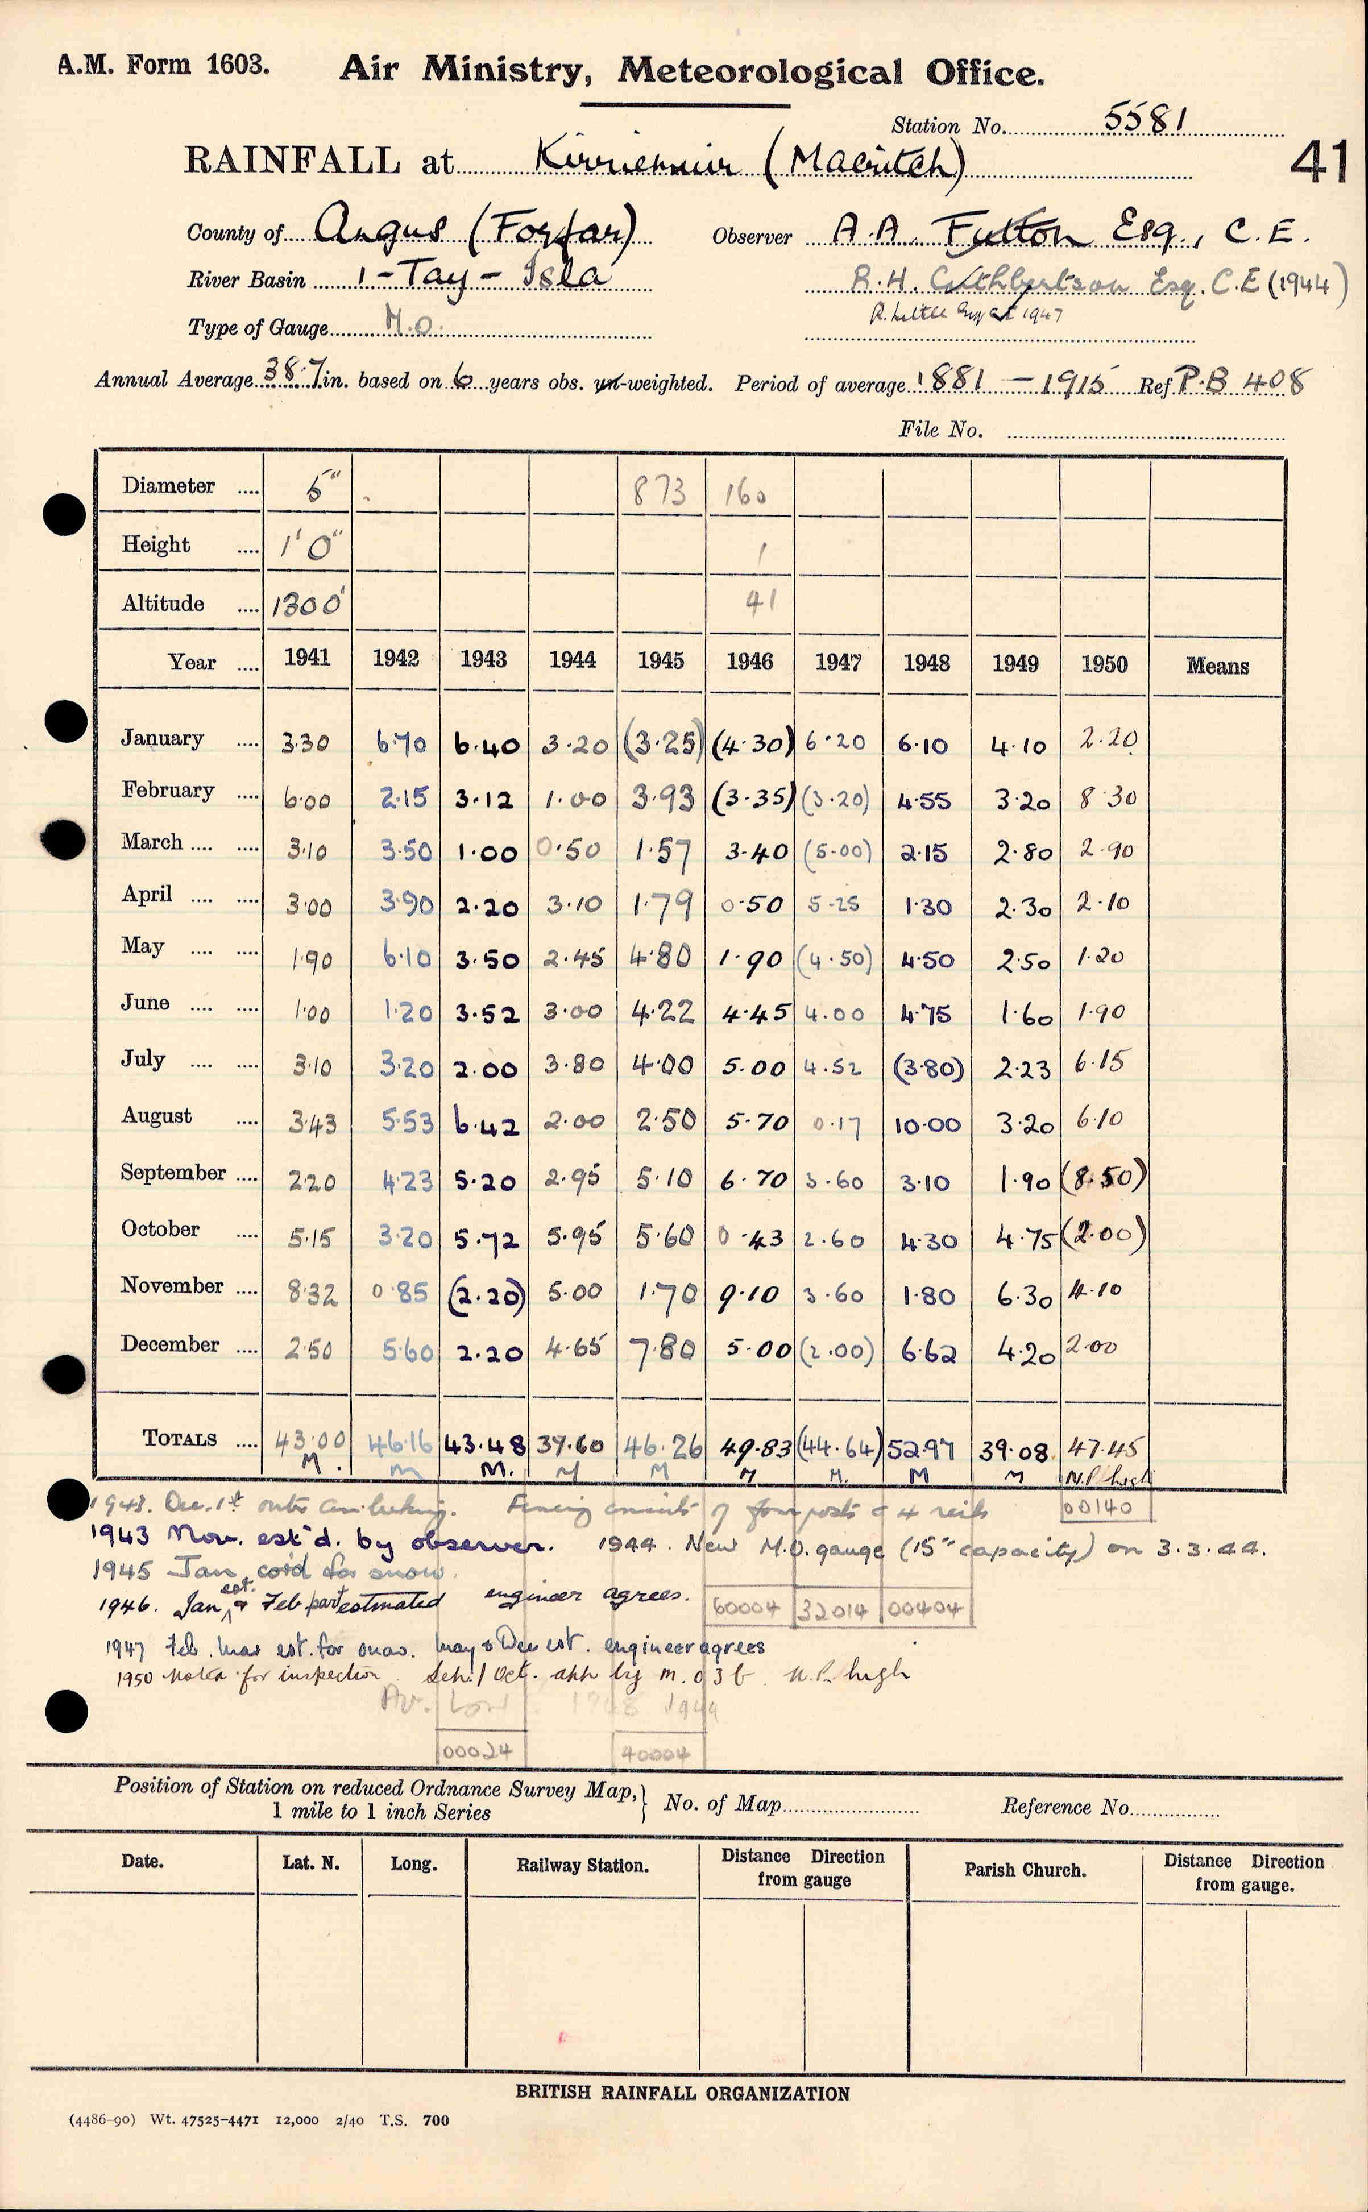 A.M. Form 1603. Air Ministry, Meteorological Office.
Station No. 5581
RAINFALL at Kirriemuir (Macritch) 41
County of Angus (Forfar) Observer A.A. Fulton Esq., C.E.
River Basin 1-Tay-Isla R.H. Cuthbertson Esq. C.E (1944)
Type of Gauge M.O. R. Little 1947
Annual Average 38.7 in. based on 6 years obs. un-weighted. Period of average 1881 - 1915 Ref P.B 408
File No.
Diameter .... 5" 873 160
Height .... 1' 0" 1
Altitude .... 1300' 41
Year .... 1941 1942 1943 1944 1945 1946 1947 1948 1949 1950 Means
January .... 3.30 6.70 6.40 3.20 (3.25) (4.30) 6.20 6.10 4.10 2.20
February .... 6.00 2.15 3.12 1.00 3.93 (3.35) (3.20) 4.55 3.20 8.30
March .... .... 3.10 3.50 1.00 0.50 1.57 3.40 (5.00) 2.15 2.80 2.90
April .... .... 3.00 3.90 2.20 3.10 1.79 0.50 5.25 1.30 2.30 2.10
May .... .... 1.90 6.10 3.50 2.45 4.80 1.90 (4.50) 4.50 2.50 1.20
June .... .... 1.00 1.20 3.52 3.00 4.22 4.45 4.00 4.75 1.60 1.90
July .... .... 3.10 3.20 2.00 3.80 4.00 5.00 4.52 (3.80) 2.23 6.15
August .... 3.43 5.53 6.42 2.00 2.50 5.70 0.17 10.00 3.20 6.10
September .... 2.20 4.23 5.20 2.95 5.10 6.70 3.60 3.10 1.90 (8.50)
October .... 5.15 3.20 5.72 5.95 5.60 0.43 2.60 4.30 4.75 (2.00)
November .... 8.32 0.85 (2.20) 5.00 1.70 9.10 3.60 1.80 6.30 4.10
December .... 2.50 5.60 2.20 4.65 7.80 5.00 (2.00) 6.62 4.20 2.00
TOTALS .... 43.00 46.16 43.48 37.60 46.26 49.83 (44.64) 52.97 39.08 47.45
M. M M. M M M M. M M N.P. high
Dec. 1st outer can leaking. Fencing consists of four posts & 4 rails 00140
1943 Nov. est'd. by observer. 1944. New M.O. gauge (15" capacity) on 3.3.44.
1945 Jan cor'd for snow.
1946. Jan est. & Feb part estimated engineer agrees. 60004 32014 00404
1947 Feb. Mar est. for snow. May & Dec est. engineer agrees
1950 Noted for inspection. Sept/Oct. app by M.O 3b. N.P. high
Av. 1948 1949
00024 40004
Position of Station on reduced Ordnance Survey Map, 1 mile to 1 inch Series } No. of Map Reference No.
Date. Lat. N. Long. Railway Station. Distance Direction from gauge Parish Church. Distance Direction from gauge.
BRITISH RAINFALL ORGANIZATION
(4486-90) Wt. 47525-4471 12,000 2/40 T.S. 700